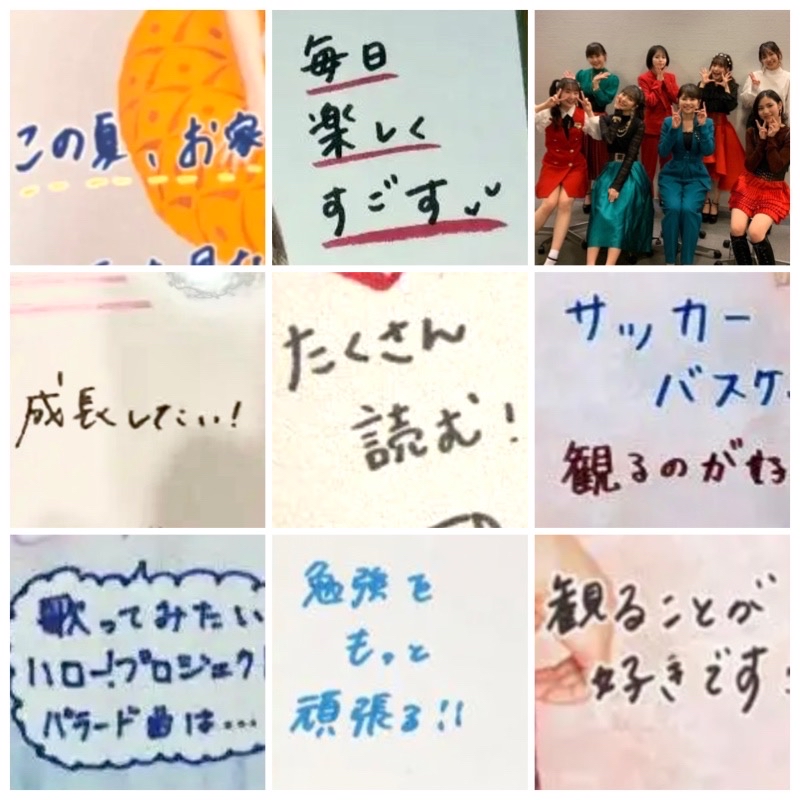 この夏、お家
毎日
楽しく
すごす
成長したい!
たくさん
読む!
サッカー
バスケ
観るのが好
歌ってみたい
ハロー!プロジェクト
バラード曲は...
勉強を
もっと
頑張る!!
観ることが
好きです